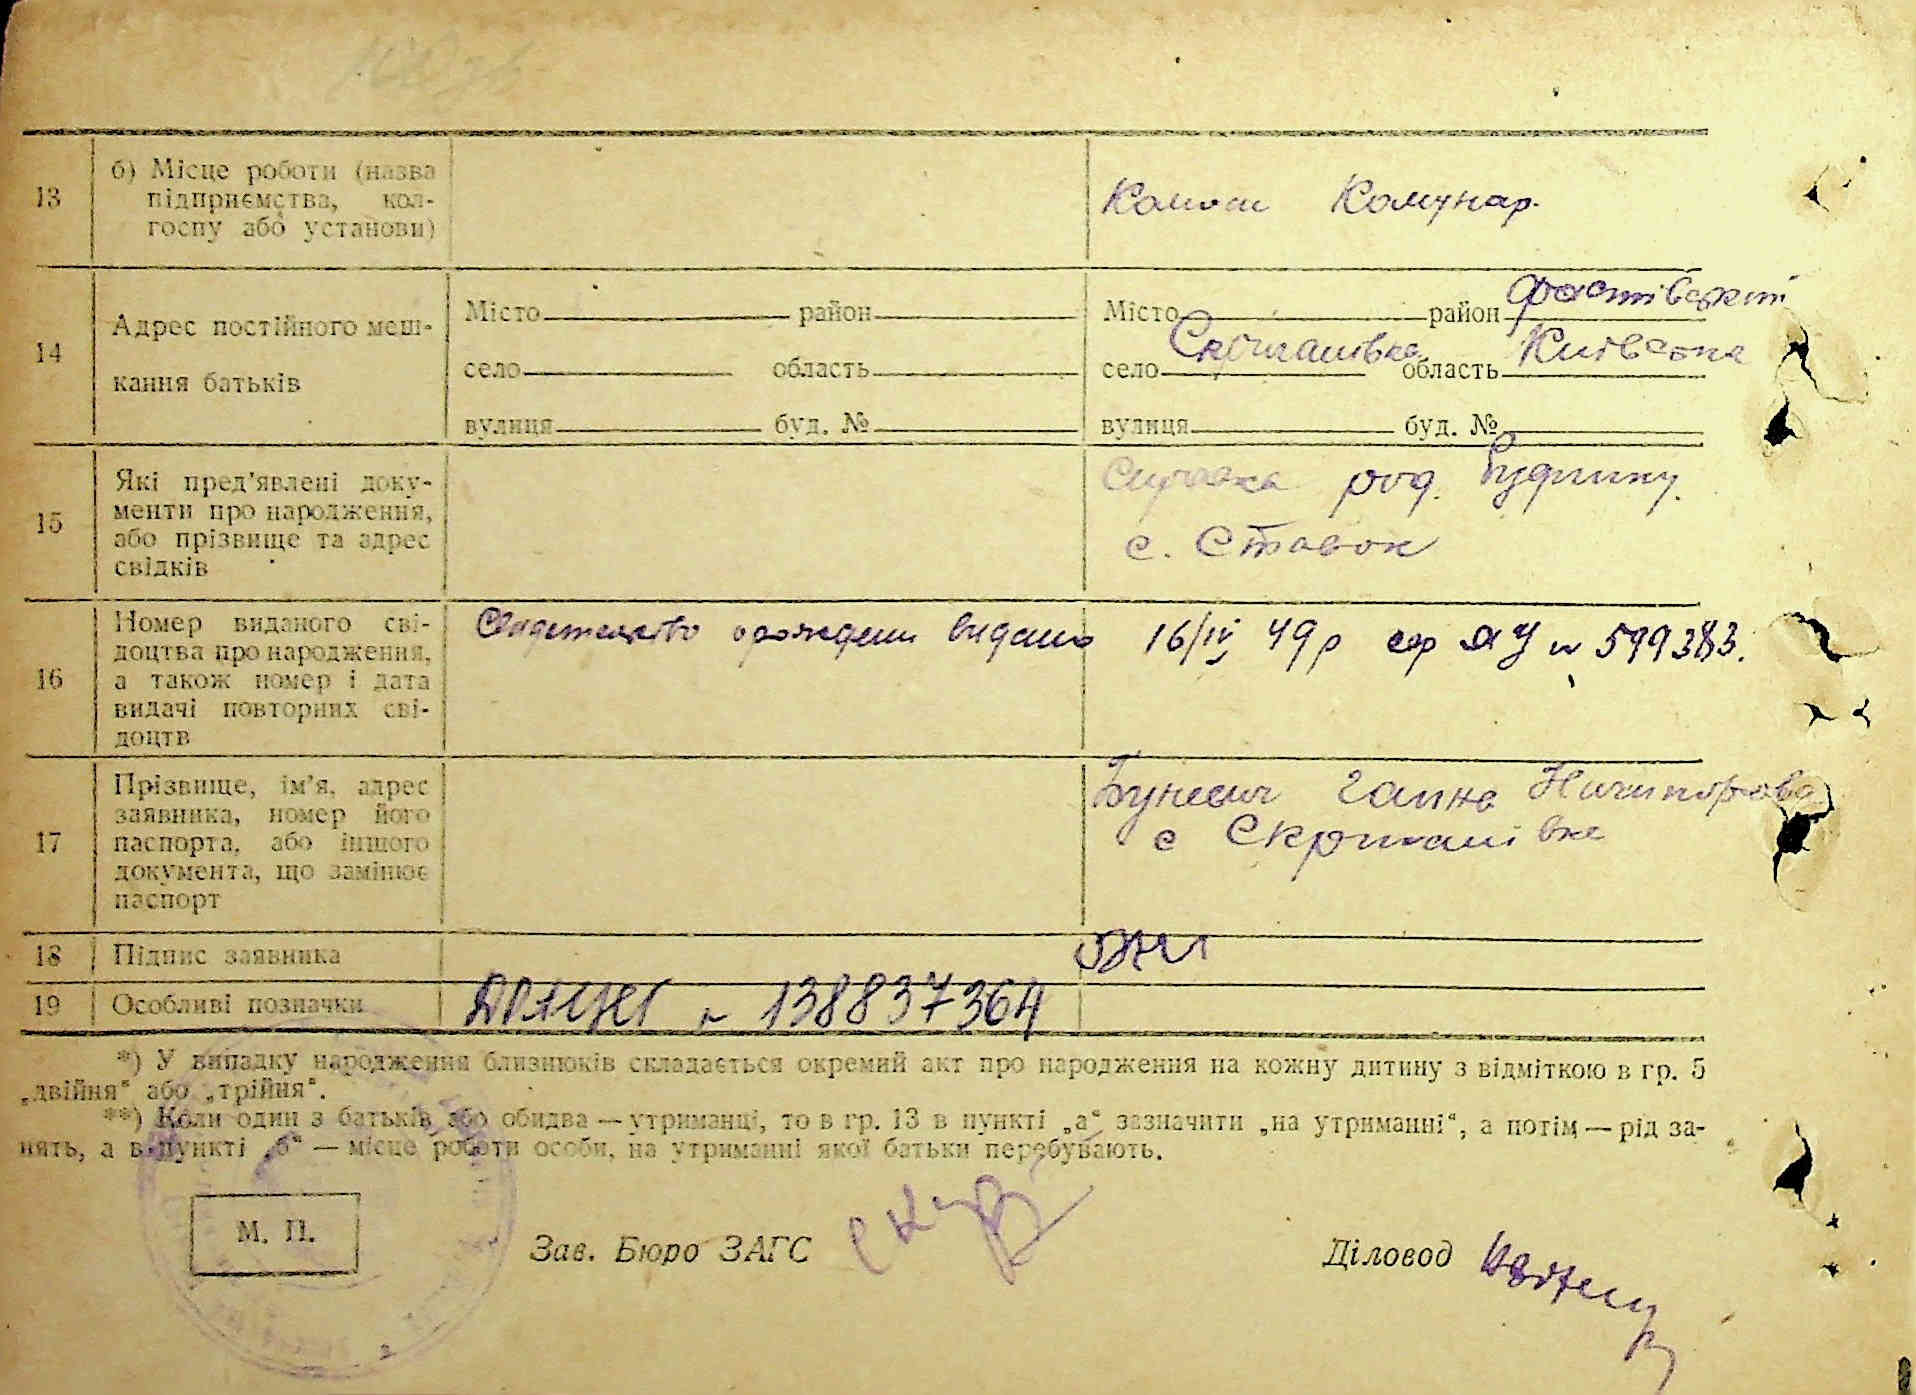 13
б) Місце роботи (назва
підприємства, кол-
госпу або установи)
Комунар.
14
Адрес постійного меш-
кання батьків
Місто район
село область
вулиця буд. №
Місто район Фастівський
село Скригалівка область Київська
вулиця буд. №
15
Які пред'явлені доку-
менти про народження,
або прізвище та адрес
свідків
Справка род. будинку.
с. Ставок
16
Номер виданого сві-
доцтва про народження,
а також номер і дата
видачі повторних сві-
доцтв
Свидетельство о рождении видано 16/IV 49 р сер ЯУ № 599383.
17
Прізвище, ім'я, адрес
заявника, номер його
паспорта, або іншого
документа, що замінює
паспорт
Ганна Ничипоровa
с Скригалівка
18
Підпис заявника
19
Особливі позначки
№ 138837364
*) У випадку народження близнюків складається окремий акт про народження на кожну дитину з відміткою в гр. 5
„двійня" або „трійня".
**) Коли один з батьків або обидва — утриманці, то в гр. 13 в пункті „а" зазначити „на утриманні", а потім — рід за-
нять, а в пункті „б" — місце роботи особи, на утриманні якої батьки перебувають.
М. П.
Зав. Бюро ЗАГС
Діловод